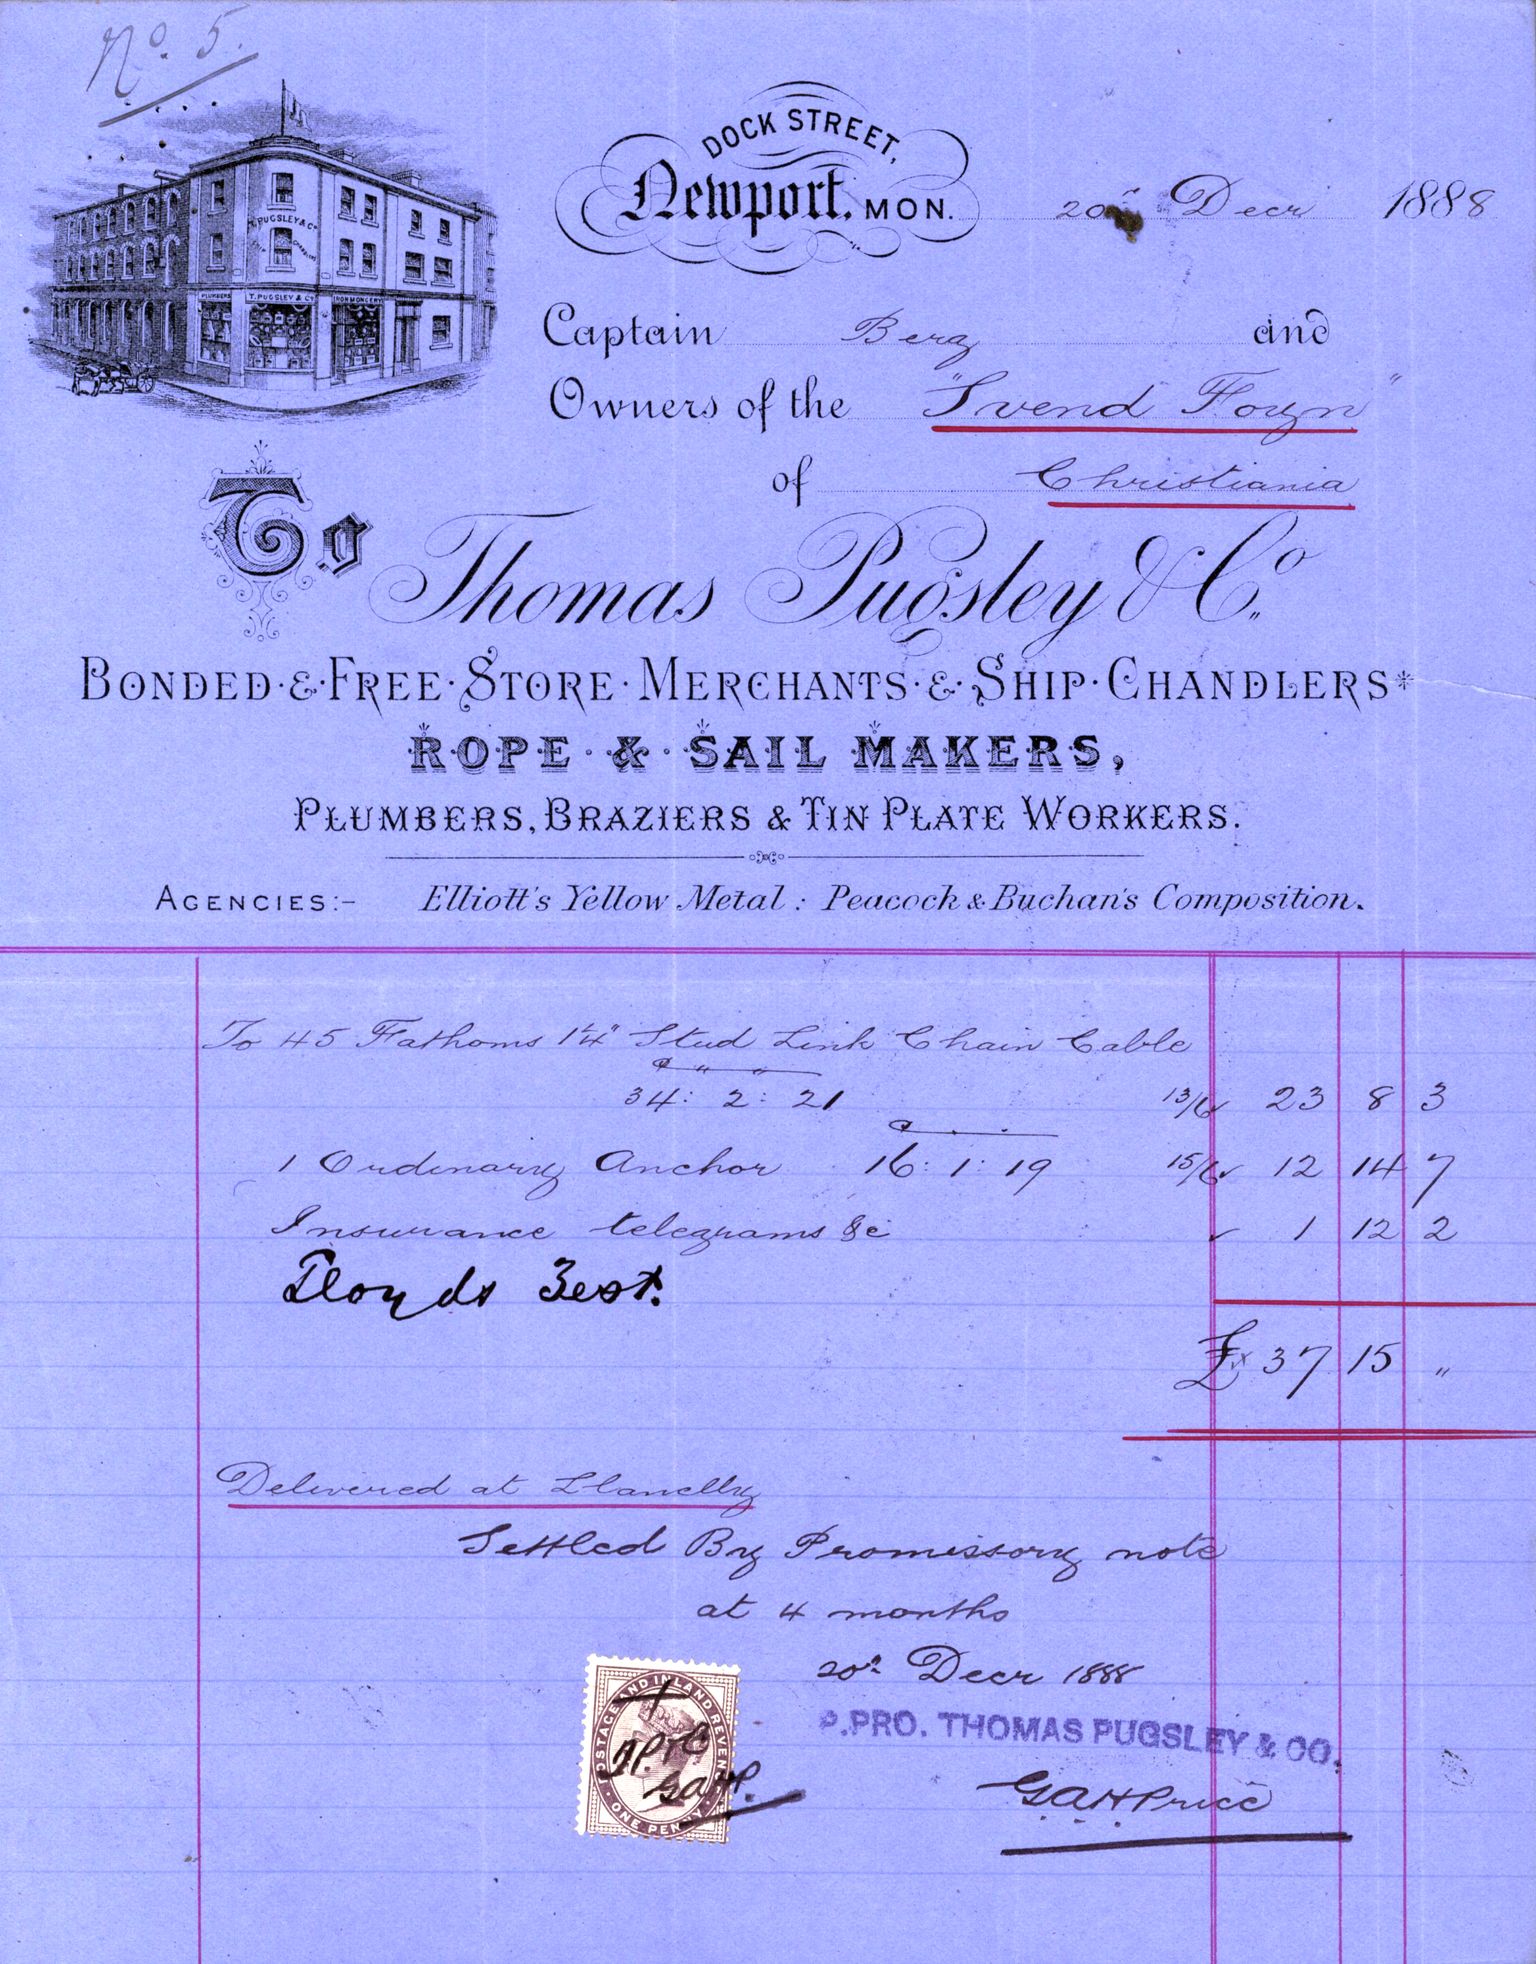 No. 5.
DOCK STREET,
Newport, MON.
20th Decr 1888
T. PUGSLEY & Co
PLUMBERS T. PUGSLEY & Co IRONMONGERY
Captain Berg and
Owners of the "Svend Foyn"
of Christiania
To Thomas Pugsley & Co.
BONDED & FREE STORE MERCHANTS & SHIP CHANDLERS
ROPE & SAIL MAKERS,
PLUMBERS, BRAZIERS & TIN PLATE WORKERS.
AGENCIES:- Elliott's Yellow Metal: Peacock & Buchan's Composition.
To 45 Fathoms 1¼" Stud Link Chain Cable
34: 2: 21 13/6 23 8 3
1 Ordinary Anchor 16: 1: 19 15/6 12 14 7
Insurance telegrams &c 1 12 2
Lloyds Test.
£ 37 15 "
Delivered at Llanelly
Settled By Promissory note
at 4 months
20th Decr 1888
P.PRO. THOMAS PUGSLEY & CO.
GAHPrice
POSTAGE AND INLAND REVENUE
T.P&C
GAHP.
ONE PENNY